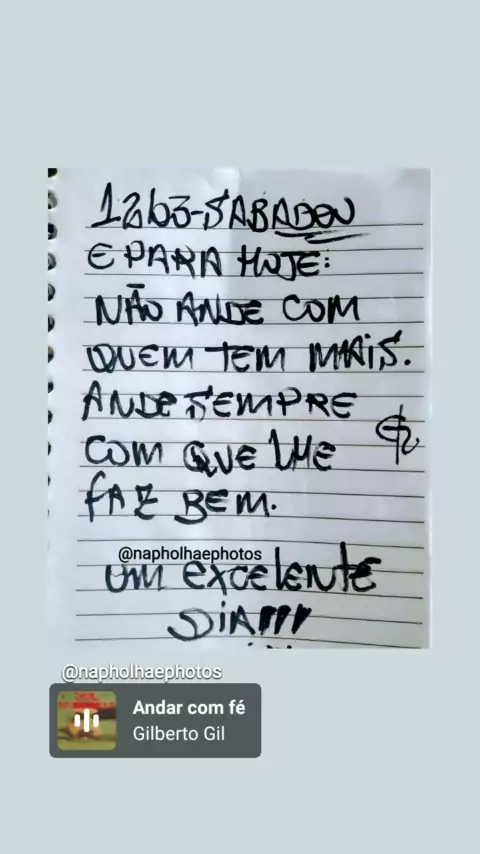 1263-SABADOU
E PARA HOJE:
NÃO ANDE COM
QUEM TEM MAIS.
ANDE SEMPRE
COM QUE LHE
FAZ BEM.
@napholhaephotos
UM EXCELENTE
DIA!!!
@napholhaephotos
Andar com fé
Gilberto Gil